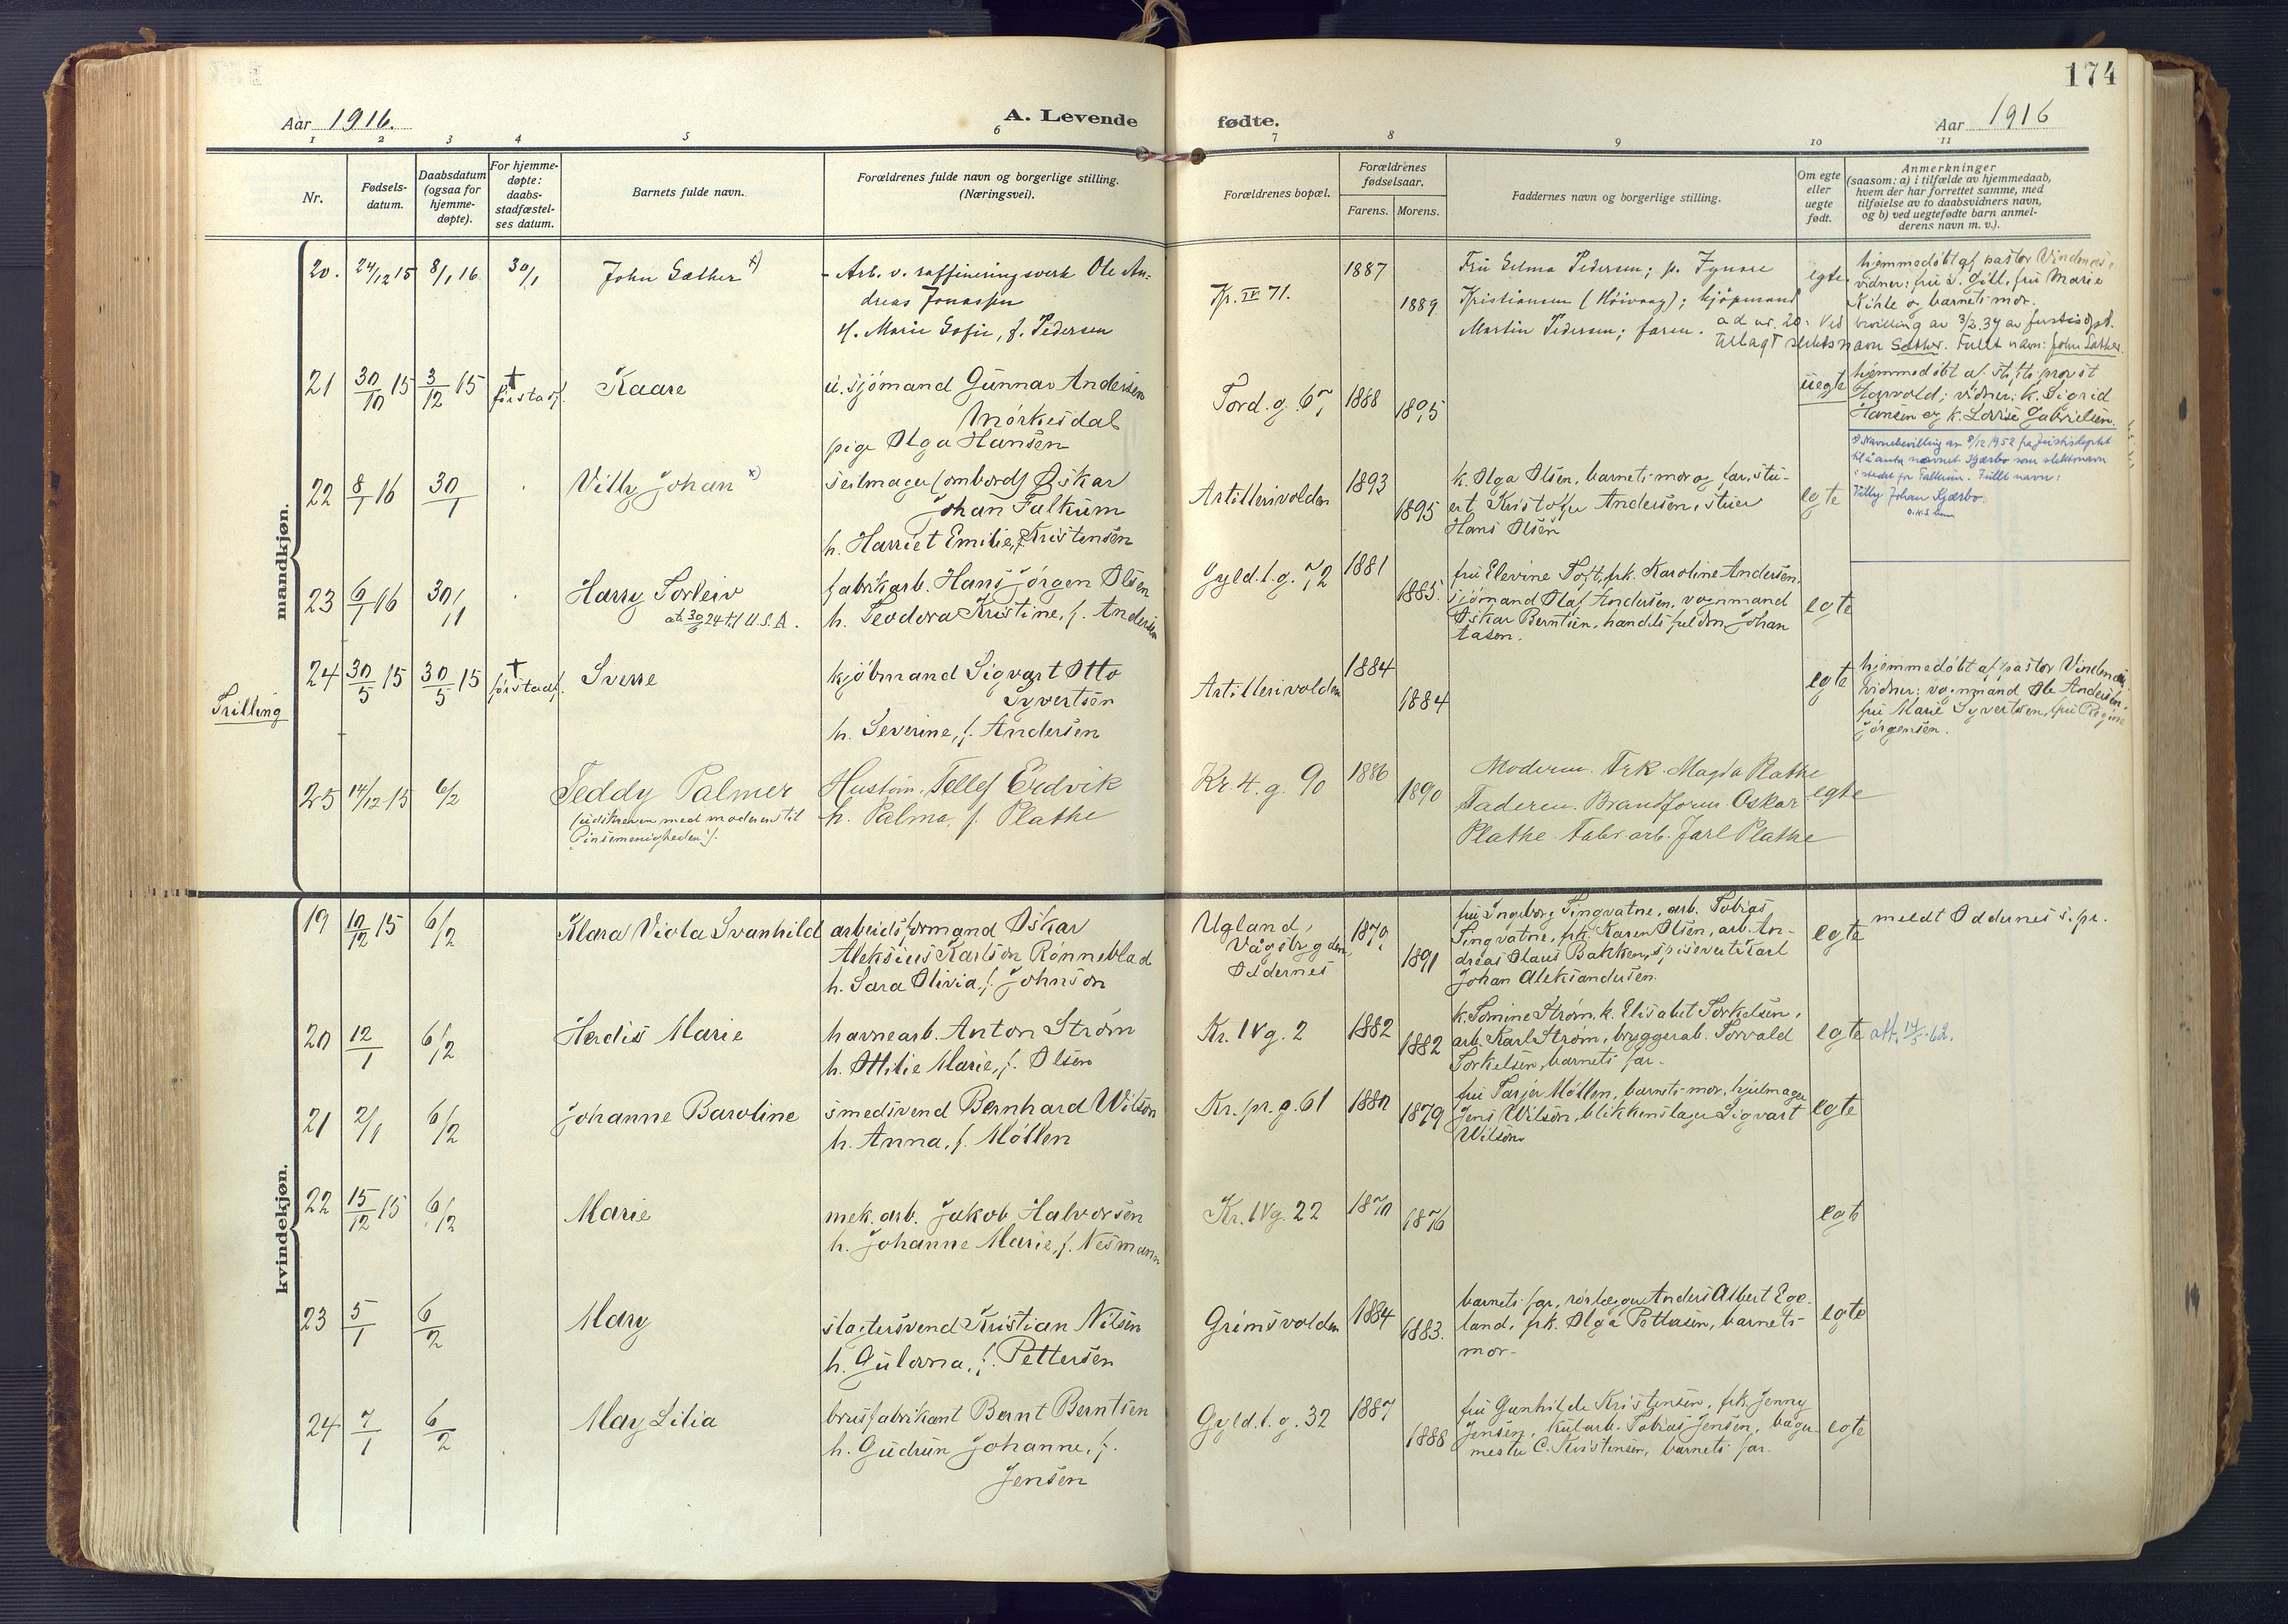 174
Aar 1916.
A. Levende
fødte.
Aar 1916
1 2 3 4 5 6 7 8 9 10 11
Nr.
Fødsels-
datum.
Daabsdatum
(ogsaa for
hjemme-
døpte).
For hjemme-
døpte:
daabs-
stadfæstel-
ses datum.
Barnets fulde navn.
Forældrenes fulde navn og borgerlige stilling.
(Næringsvei).
Forældrenes bopæl.
Forældrenes
fødselsaar.
Farens. Morens.
Faddernes navn og borgerlige stilling.
Om egte
eller
uegte
født.
Anmerkninger
(saasom: a) i tilfælde av hjemmedaab,
hvem der har forrettet samme, med
tilføielse av to daabsvidners navn,
og b) ved uegtefødte barn anmel-
derens navn m. v.).
mandkjøn.
20. 24/12 15 8/1 16 30/1 John Sæther x)
- Arb. v. raffineringsverk Ole An-
dreas Jonassen
H. Marie Sofie, f. Pedersen
Kr. IV 71.
1887
1889
Fru Selma Pedersen; p. Zgnore
Kristiansen (Höivaag); kjöpmand
Martin Pedersen; faren.
egte
hjemmedöbt af pastor Vindenes,
vidner: fru S. Gill, fru Marie
Kihle og barnets mor.
ad nr. 20: Ved bevilling av 3/2.34 av justisdpt.
tillagt slektsnavn Sæther. Fullt navn: John Sæther.
21 30/10 15 3/12 15 † før stadf. Kaare
u. sjömand Gunnar Andersen
Mørkesdal
pige Olga Hansen
Tord. g. 67
1888
1895
uegte
hjemmedöbt af stiftsprovst
Hagvold; vidner: k. Sigrid
Hansen og k. Lovise Gabrielsen.
22 8/1 16 30/1 Villy Johan x)
seilmager (ombord) Oskar
Johan Falkum
h. Harriet Emilie, f. Kristensen
Artillerivolden
1893
1895
k. Olga Olsen, barnets mor og far, stu-
ert Kristoffer Andersen, stuer
Hans Olsen
egte
x) Navnebevilling av 8/12 1952 fra Justisdeptet
til å anta navnet Kjærbo som slektsnavn
i stedet for Falkum. Fullt navn:
Villy Johan Kjærbo.
23 6/1 16 30/1 Harry Torleiv
att. 30/6 24 til U.S.A.
fabrikarb. Hans Jörgen Olsen
h. Teodora Kristine, f. Andersen
Gyld. l. g. 72
1881
1885.
fru Elevine Toft, frk. Karoline Andersen,
sjömand Olaf Andersen, vognmand
Oskar Berntsen, handelsfuldm. Johan
Aasen.
egte
Trilling
24 30/5 15 30/5 15 † før stadf. Sverre
kjöbmand Sigvart Otto
Syvertsen
h. Severine, f. Andersen
Artillerivolden
1884
1884
egte
hjemmedöbt af pastor Vindenes
vidner: vognmand Ole Andersen,
fru Marie Syvertsen, fru Regine
Jörgensen.
25 14/12 15 6/2 Teddy Palmer
(udskreven med moderen til
Pinsemenigheden).
Hustøm. Tellef Eidvik
h. Palma, f. Plathe
Kr. 4. g. 90
1886
1890
Moderen. Frk. Magda Plathe
Faderen. Brandform. Oskar
Plathe. Fabr. arb. Jarl Plathe
egte
kvindekjøn.
19 10/12 15 6/2 Klara Viola Svanhild
arbeidsformand Oskar
Aleksius Karlson Rønneblad
h. Sara Olivia, f. Johnson
Ugland,
Vågsbygden,
Oddernes
1870
1891
fru Ingeborg Tingvatne, arb. Tobias
Tingvatne, frk. Karen Olsen, arb. An-
dreas Olaus Bakken, spisevert Karl
Johan Aleksandersen.
egte
meldt Oddernes s. pr.
20 12/1 6/2 Herdis Marie
havnearb. Anton Strøm
h. Ottilie Marie, f. Olsen
Kr. IV g. 2
1882
1882
k. Tomine Strøm, k. Elisabet Torkelsen,
arb. Karl Strøm, bryggerarb. Torvald
Torkelsen, barnets far.
egte
att. 14/5 62.
21 2/1 6/2 Johanne Baroline
smedsvend Bernhard Wilson
h. Anna, f. Möllen
Kr. pr. g. 61
1880
1879
fru Tarjer Møllen, barnets mor, hjulmager
Jens Wilson, blikkenslager Sigvart
Wilson
egte
22 15/12 15 6/2 Marie
mek. arb. Jakob Halvorsen
h. Johanne Marie, f. Nesmann
Kr. IV g. 22
1870
1876
egte
23 5/1 6/2 Mary
slagtersvend Kristian Nilsen
h. Gulorna, f. Pettersen
Grimsvolden
1884
1883.
barnets far, rörlægger Anders Albert Ege-
land, frk. Olga Pettersen, barnets
mor.
egte
24 7/1 6/2 May Lilia
brusfabrikant Bernt Berntsen
h. Gudrun Johanne, f.
Jensen
Gyld. l. g. 32
1887
1888
fru Gunhilde Kristensen, frk. Jenny
Jensen, kularb. Tobias Jensen, bager-
mester C. Kristensen, barnets far.
egte